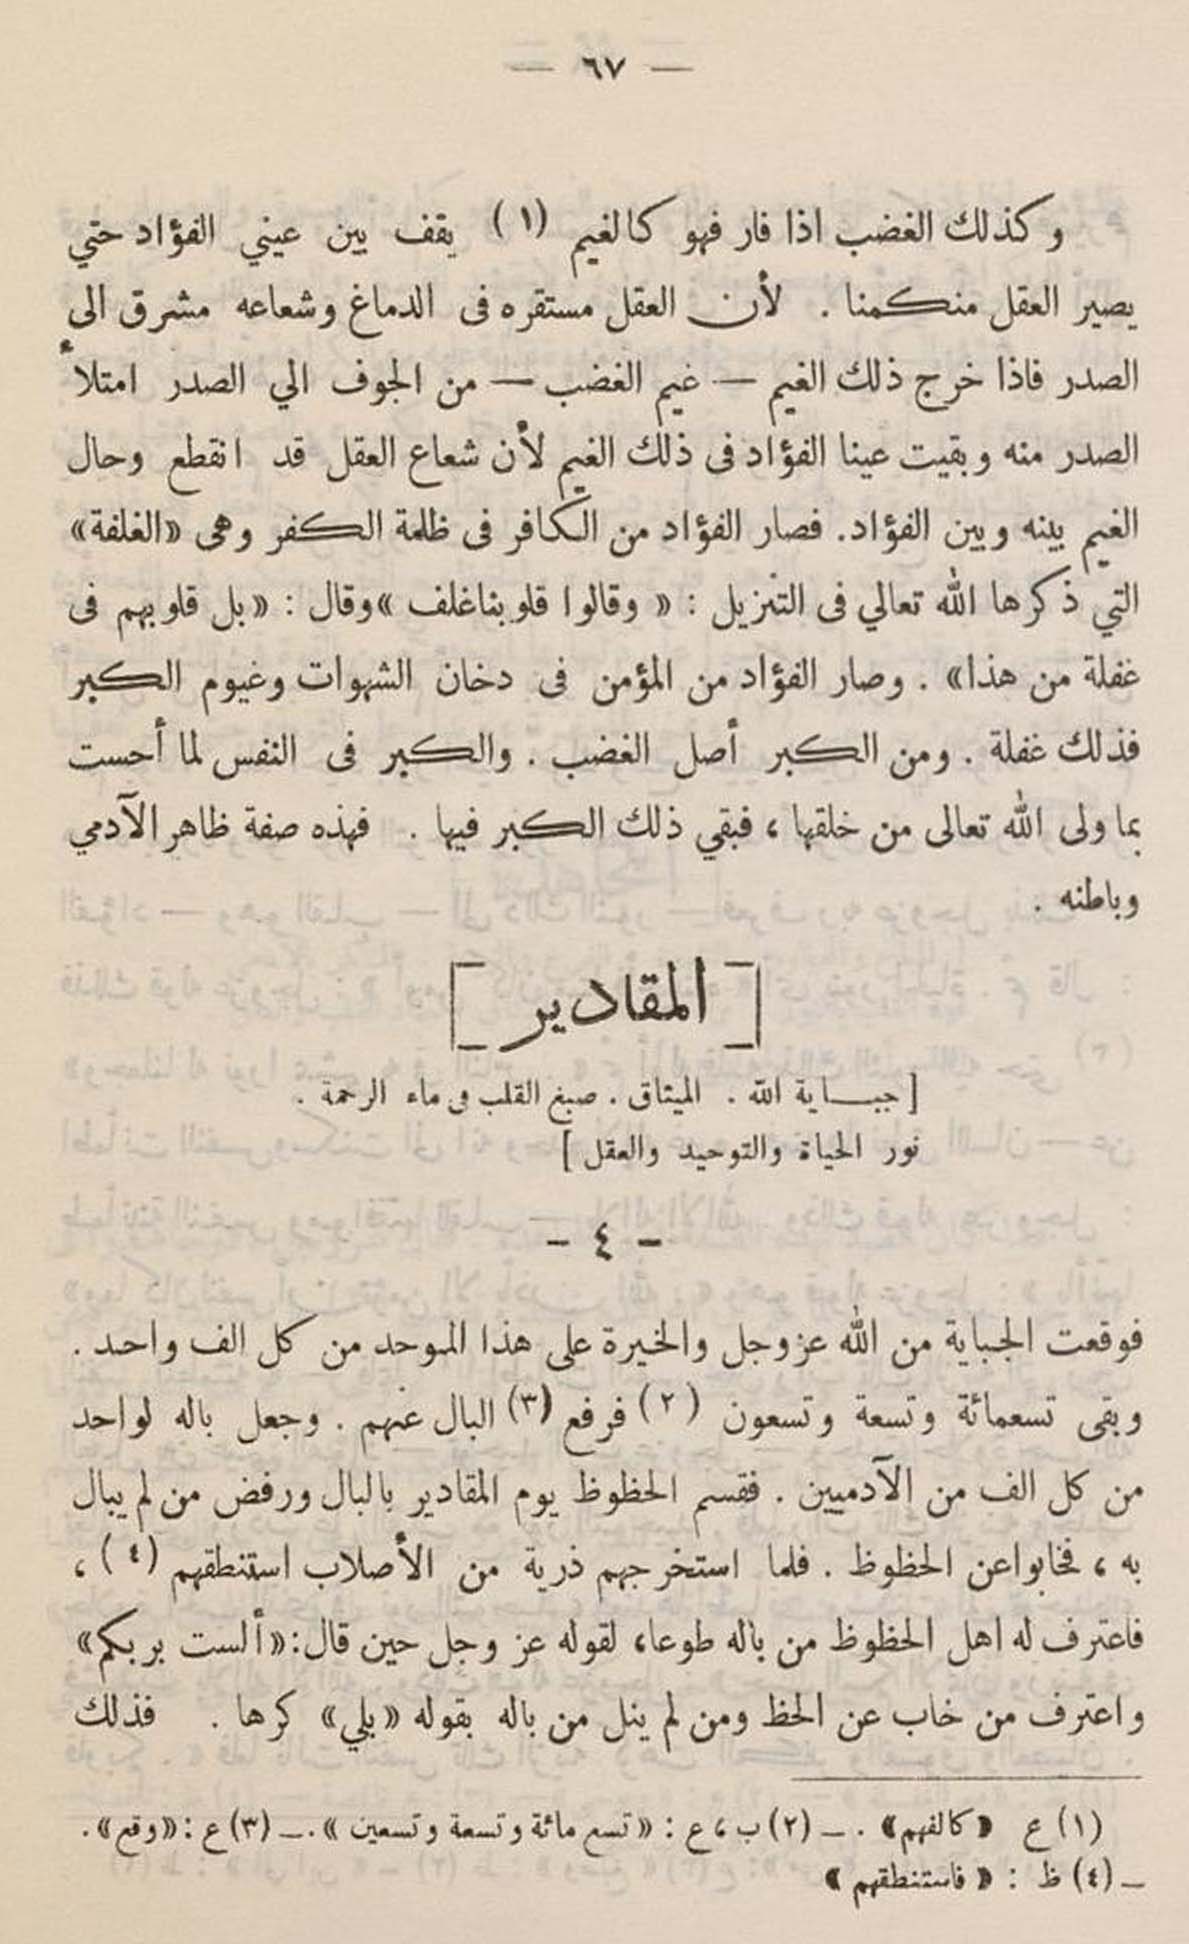 — ٦٧ —
وكذلك الغضب اذا فار فهو كالغيم (١) يقف بين عيني الفؤاد حتي
يصير العقل منكمنا . لأن العقل مستقره فى الدماغ وشعاعه مشرق الى
الصدر فاذا خرج ذلك الغيم — غيم الغضب — من الجوف الي الصدر امتلأ
الصدر منه وبقيت عينا الفؤاد فى ذلك الغيم لأن شعاع العقل قد انقطع وحال
الغيم بينه وبين الفؤاد. فصار الفؤاد من الكافر فى ظلمة الكفر وهى «الغلفة»
التي ذكرها الله تعالي فى التنزيل : « وقالوا قلوبناغلف »وقال : «بل قلوبهم فى
غفلة من هذا» . وصار الفؤاد من المؤمن فى دخان الشهوات وغيوم الكبر
فذلك غفلة . ومن الكبر أصل الغضب . والكبر فى النفس لما أحست
بما ولى الله تعالى من خلقها ، فبقي ذلك الكبر فيها . فهذه صفة ظاهر الآدمي
وباطنه .
[ المقادير ]
[ جبــاية الله . الميثاق . صبغ القلب فى ماء الرحمة .
نور الحياة والتوحيد والعقل ]
- ٤ -
فوقعت الجباية من الله عز وجل والخيرة على هذا الموحد من كل الف واحد .
وبقى تسعمائة وتسعة وتسعون (٢) فرفع (٣) البال عنهم . وجعل باله لواحد
من كل الف من الآدميين . فقسم الحظوظ يوم المقادير بالبال ورفض من لم يبال
به ، فخابواعن الحظوظ . فلما استخرجهم ذرية من الأصلاب استنطقهم (٤) ،
فاعترف له اهل الحظوظ من باله طوعا، لقوله عز وجل حين قال:«ألست بربكم»
واعترف من خاب عن الحظ ومن لم ينل من باله بقوله «بلي» كرها . فذلك
(١) ع «كالفهم» . ـ (٢) ب، ع : «تسع مائة وتسعة وتسعين ».ـ (٣) ع :«وقع».
ـ (٤) ظ : « فاستنطقهم »